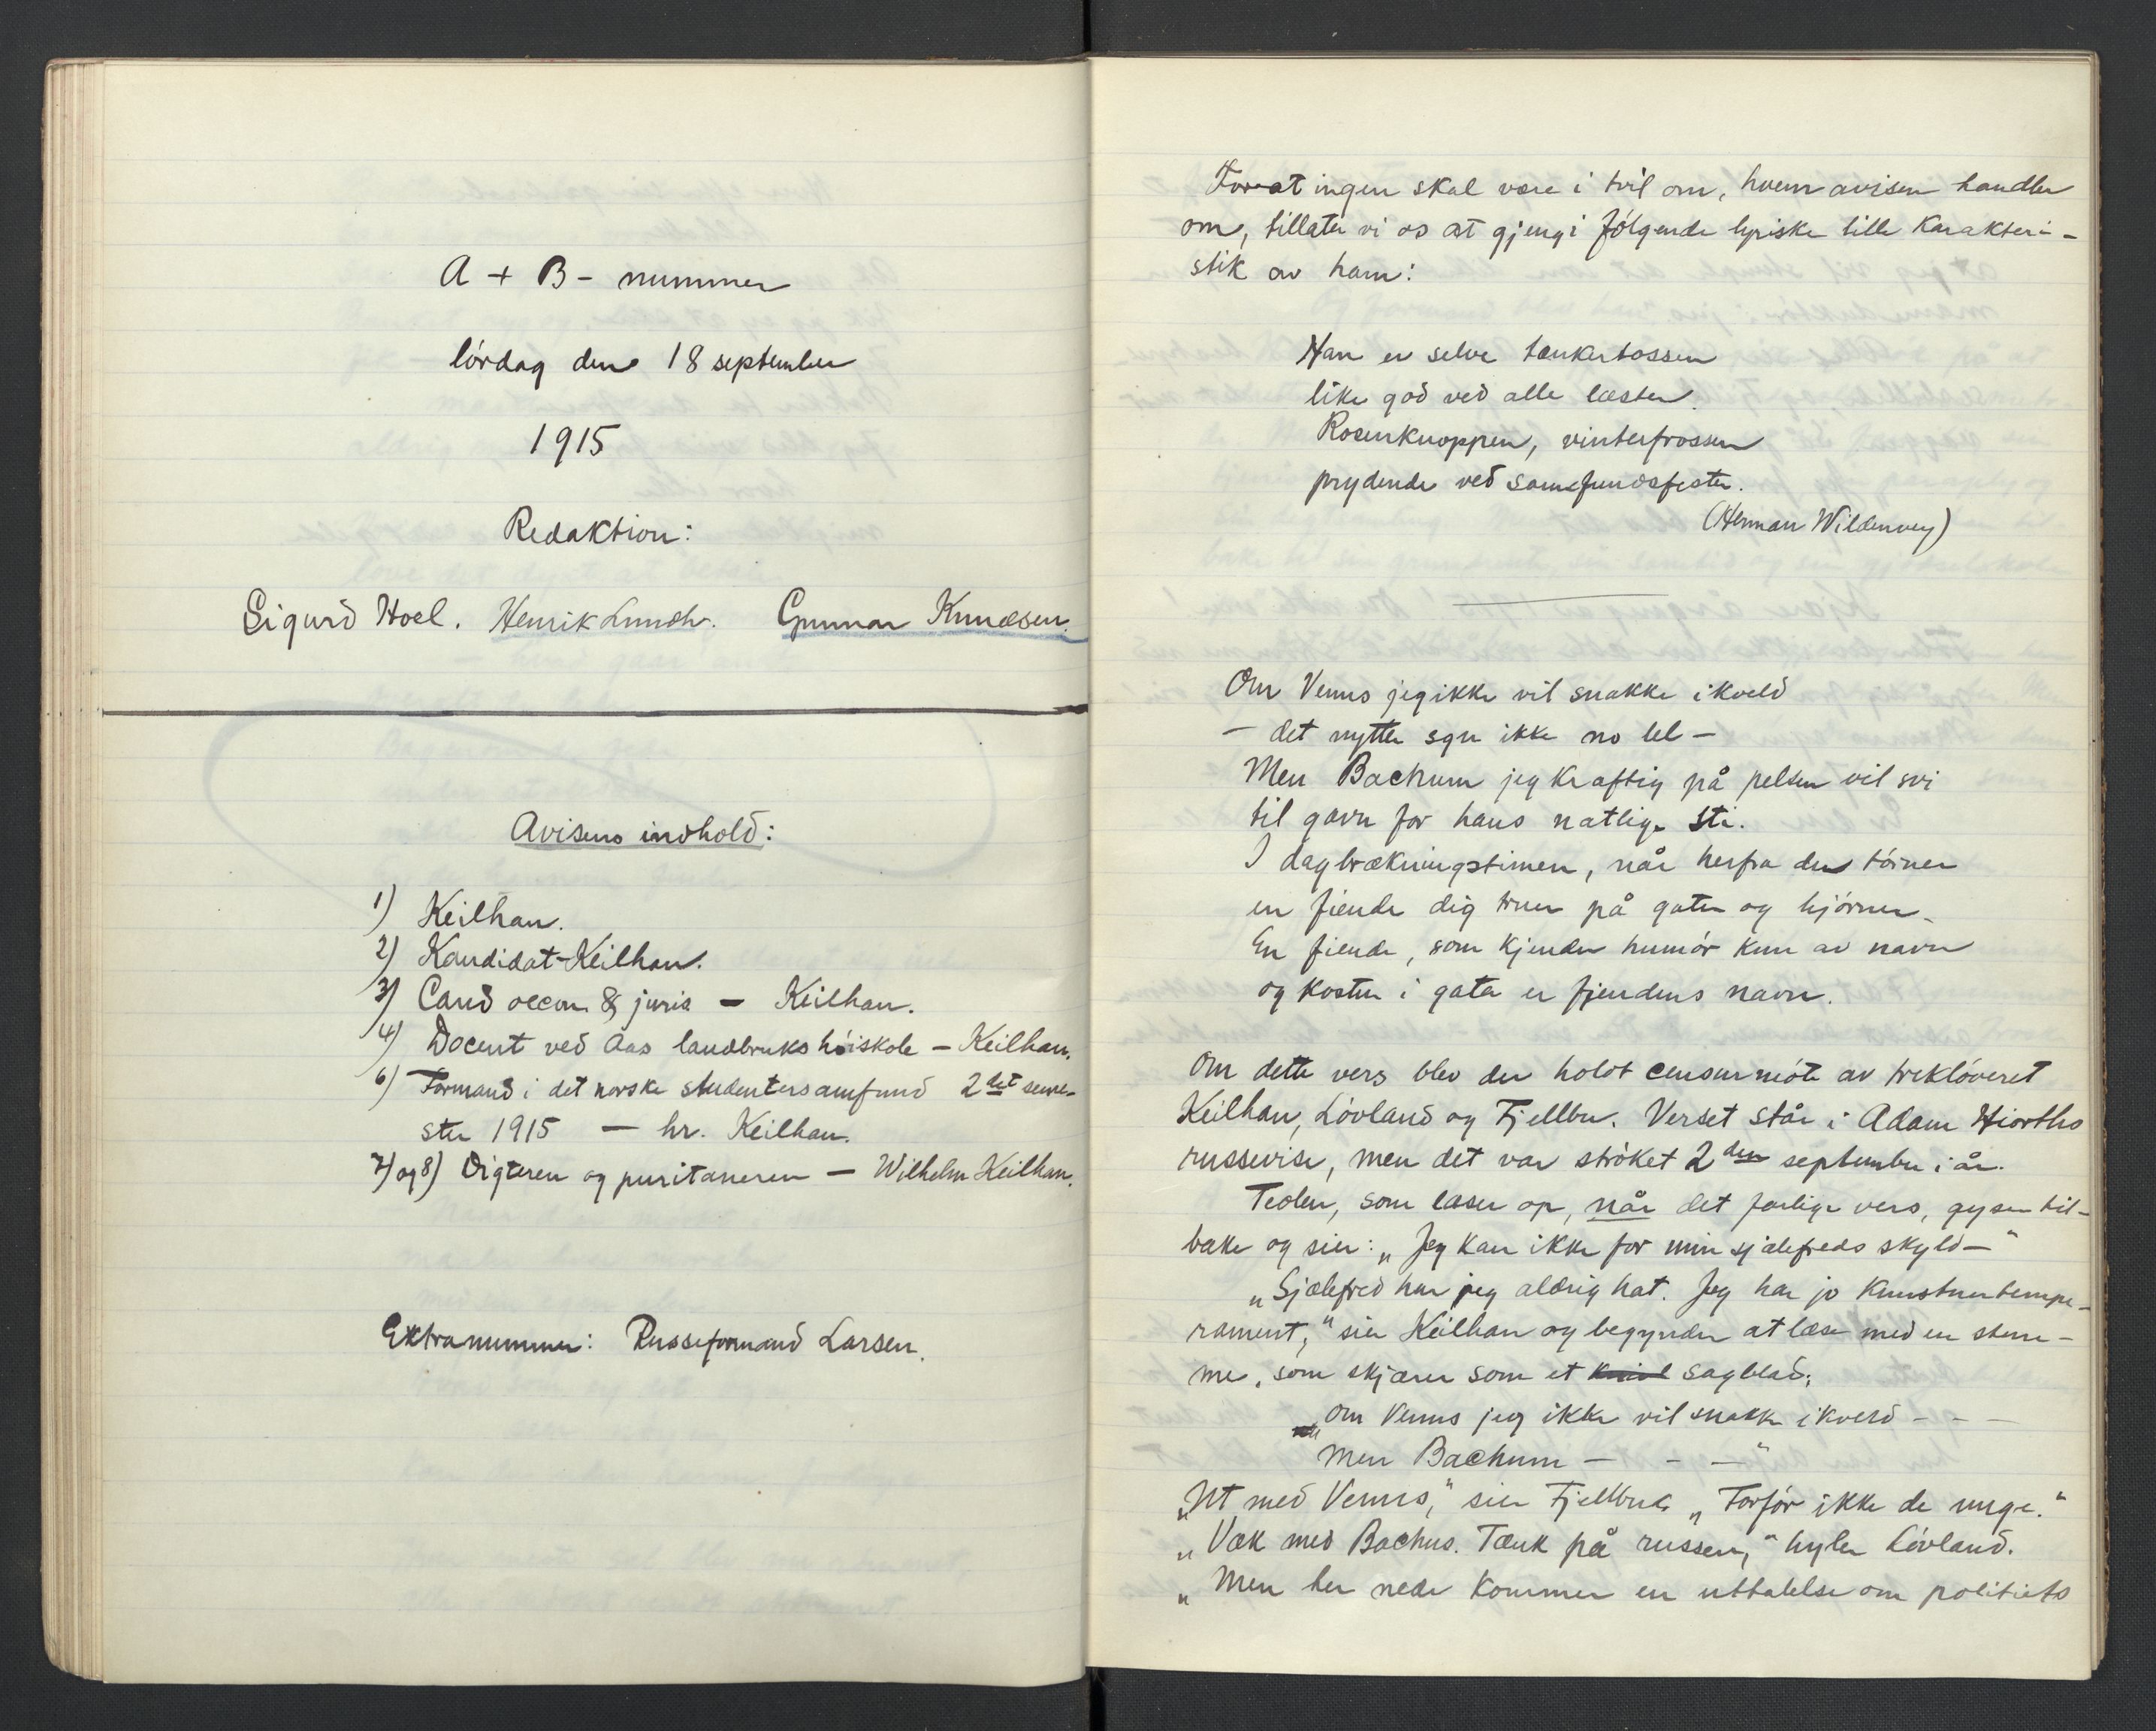 A + B - nummer
lördag den 18 september
1915
Redaktion:
Sigurd Hoel. Henrik Lundh. Gunnar Knudsen.
Avisens indhold:
1) Keilhau.
2) Kandidat-Keilhau.
3) Cand oecon & juris - Keilhau.
4) Docent ved Aas landbrukshöiskole - Keilhau.
6) Formand i det norske studentersamfund 2det seme-
ster 1915 - hr. Keilhau.
7) og 8) Digteren og puritaneren - Wilhelm Keilhau.
Extranummer: Russeformand Larsen.
For at ingen skal være i tvil om, hvem avisen handler
om, tillater vi os at gjengi fölgende lyriske lille karakteri-
stik av ham:
Han er selve tænkerbossen
like god ved alle læster.
Rosenknoppen, vinterfrossen
prydende ved samfundsfester.
(Herman Wildenvey)
Om Venus jeg ikke vil snakke ikveld
- det nytter sgu ikke no lel -
Men Bachum jeg kraftig på pelsen vil svi
til gavn for hans natlige sti.
I dagbrækningstimen, når herfra der törner
en fiende dig truer på gater og hjörner.
En fiende, som kjender humör kun av navn
og kosten i gata er fjendens navn.
Om dette vers blev der holdt censurmöte av treklöveret
Keilhau, Lövland og Fjellbu. Verset står i Adam Hiorths
russevise, men det var ströket 2den september i år.
Teolen, som læser op, når det farlige vers, gyser til-
bake og sier: „Jeg kan ikke for min sjælefreds skyld-"
„Sjælefred har jeg aldrig hat. Jeg har jo kunstnertempe-
rament," sier Keilhau og begynder at læse med en stem-
me, som skjærer som et sagblad:
„Om Venus jeg ikke vil snakke ikveld - - -
Men Bachum - - -"
„Ut med Venus," sier Fjellbu. „Forför ikke de unge."
„Væk med Bachus. Tænk på russen," hyler Lövland.
„Men her nede kommer en uttalelse om politiets